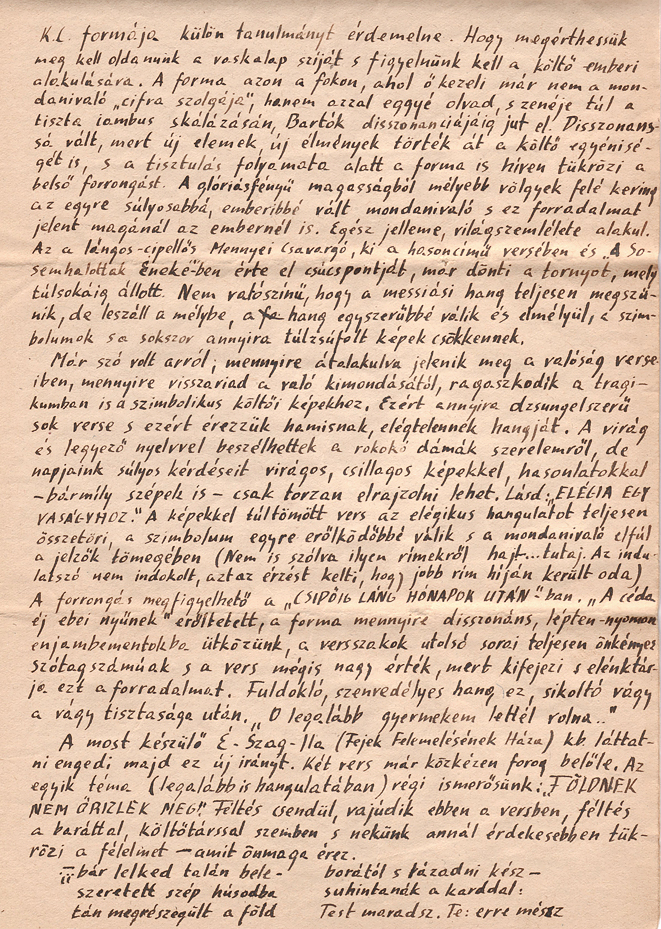 K.L. formája külön tanulmányt érdemelne. Hogy megérthessük
meg kell oldanunk a vaskalap szíját s figyelnünk kell a költő emberi
alakulására. A forma azon a fokon, ahol ő kezeli már nem a mon-
danivaló „cifra szolgája", hanem azzal eggyé olvad, s zenéje túl a
tiszta iambus skálázásán, Bartók disszonanciájáig jut el. Disszonans-
sá vált, mert új elemek, új élmények törték át a költő egyénisé-
gét is, s a tisztulás folyamata alatt a forma is híven tükrözi a
belső forrongást. A glóriásfényű magasságból mélyebb völgyek felé kering
az egyre súlyosabbá, emberibbé vált mondanivaló s ez forradalmat
jelent magánál az embernél is. Egész jelleme, világszemlélete alakul.
Az a lángos-cipellős Mennyei Csavargó, ki a hasoncímű versében és „A So-
semhalottak Éneké"-ben érte el csúcspontját, már dönti a tornyot, mely
túlsokáig állott. Nem valószínű, hogy a messiási hang teljesen megszű-
nik, de leszáll a mélybe, a hang egyszerűbbé válik és elmélyül, a szim-
bolumok s a sokszor annyira túlzsúfolt képek csökkennek.
Már szó volt arról, mennyire átalakulva jelenik meg a valóság verse-
iben, mennyire visszariad a való kimondásától, ragaszkodik a tragi-
kumban is a szimbolikus költői képekhez. Ezért annyira dzsungelszerű
sok verse s ezért érezzük hamisnak, elégtelennek hangját. A virág
és legyező nyelvvel beszélhettek a rokokó dámák szerelemről, de
napjaink súlyos kérdéseit virágos, csillagos képekkel, hasonlatokkal
– bármily szépek is – csak torzan elrajzolni lehet. Lásd: „ELÉGIA EGY
VASÁGYHOZ." A képekkel túltömött vers az elégikus hangulatot teljesen
összetöri, a szimbolum egyre erőlködőbbé válik s a mondanivaló elfúl
a jelzők tömegében (Nem is szólva ilyen rímekről hajt...tutaj. Az indu-
latszó nem indokolt, azt az érzést kelti, hogy jobb rím híján került oda)
A forrongás megfigyelhető a „CSIPŐIG LÁNG HÓNAPOK UTÁN"-ban. „A céda
éj ebei nyűnek" erőltetett, a forma mennyire disszonáns, lépten-nyomon
enjambementokba ütközünk, a versszakok utolsó sorai teljesen önkényes
szótagszámúak s a vers mégis nagy érték, mert kifejezi s elénktár-
ja ezt a forradalmat. Fuldokló, szenvedélyes hang ez, sikoltó vágy
a vágy tisztasága után. „Ó legalább gyermekem lettél volna.."
A most készülő É-Szag-Ila (Fejek Felemelésének Háza) kb. láttat-
ni engedi majd ez új irányt. Két vers már közkézen forog belőle. Az
egyik téma (legalább is hangulatában) régi ismerősünk: „FÖLDNEK
NEM ŐRIZLEK MEG". Féltés csendül, vajúdik ebben a versben, féltés
a baráttal, költőtárssal szemben s nekünk annál érdekesebben tük-
rözi a félelmet – amit önmaga érez.
„...bár lelked talán bele-
szeretett szép húsodba
tán megrészegült a föld
borától s lázadni kész –
suhintanák a karddal:
Test maradsz. Te: erre mész